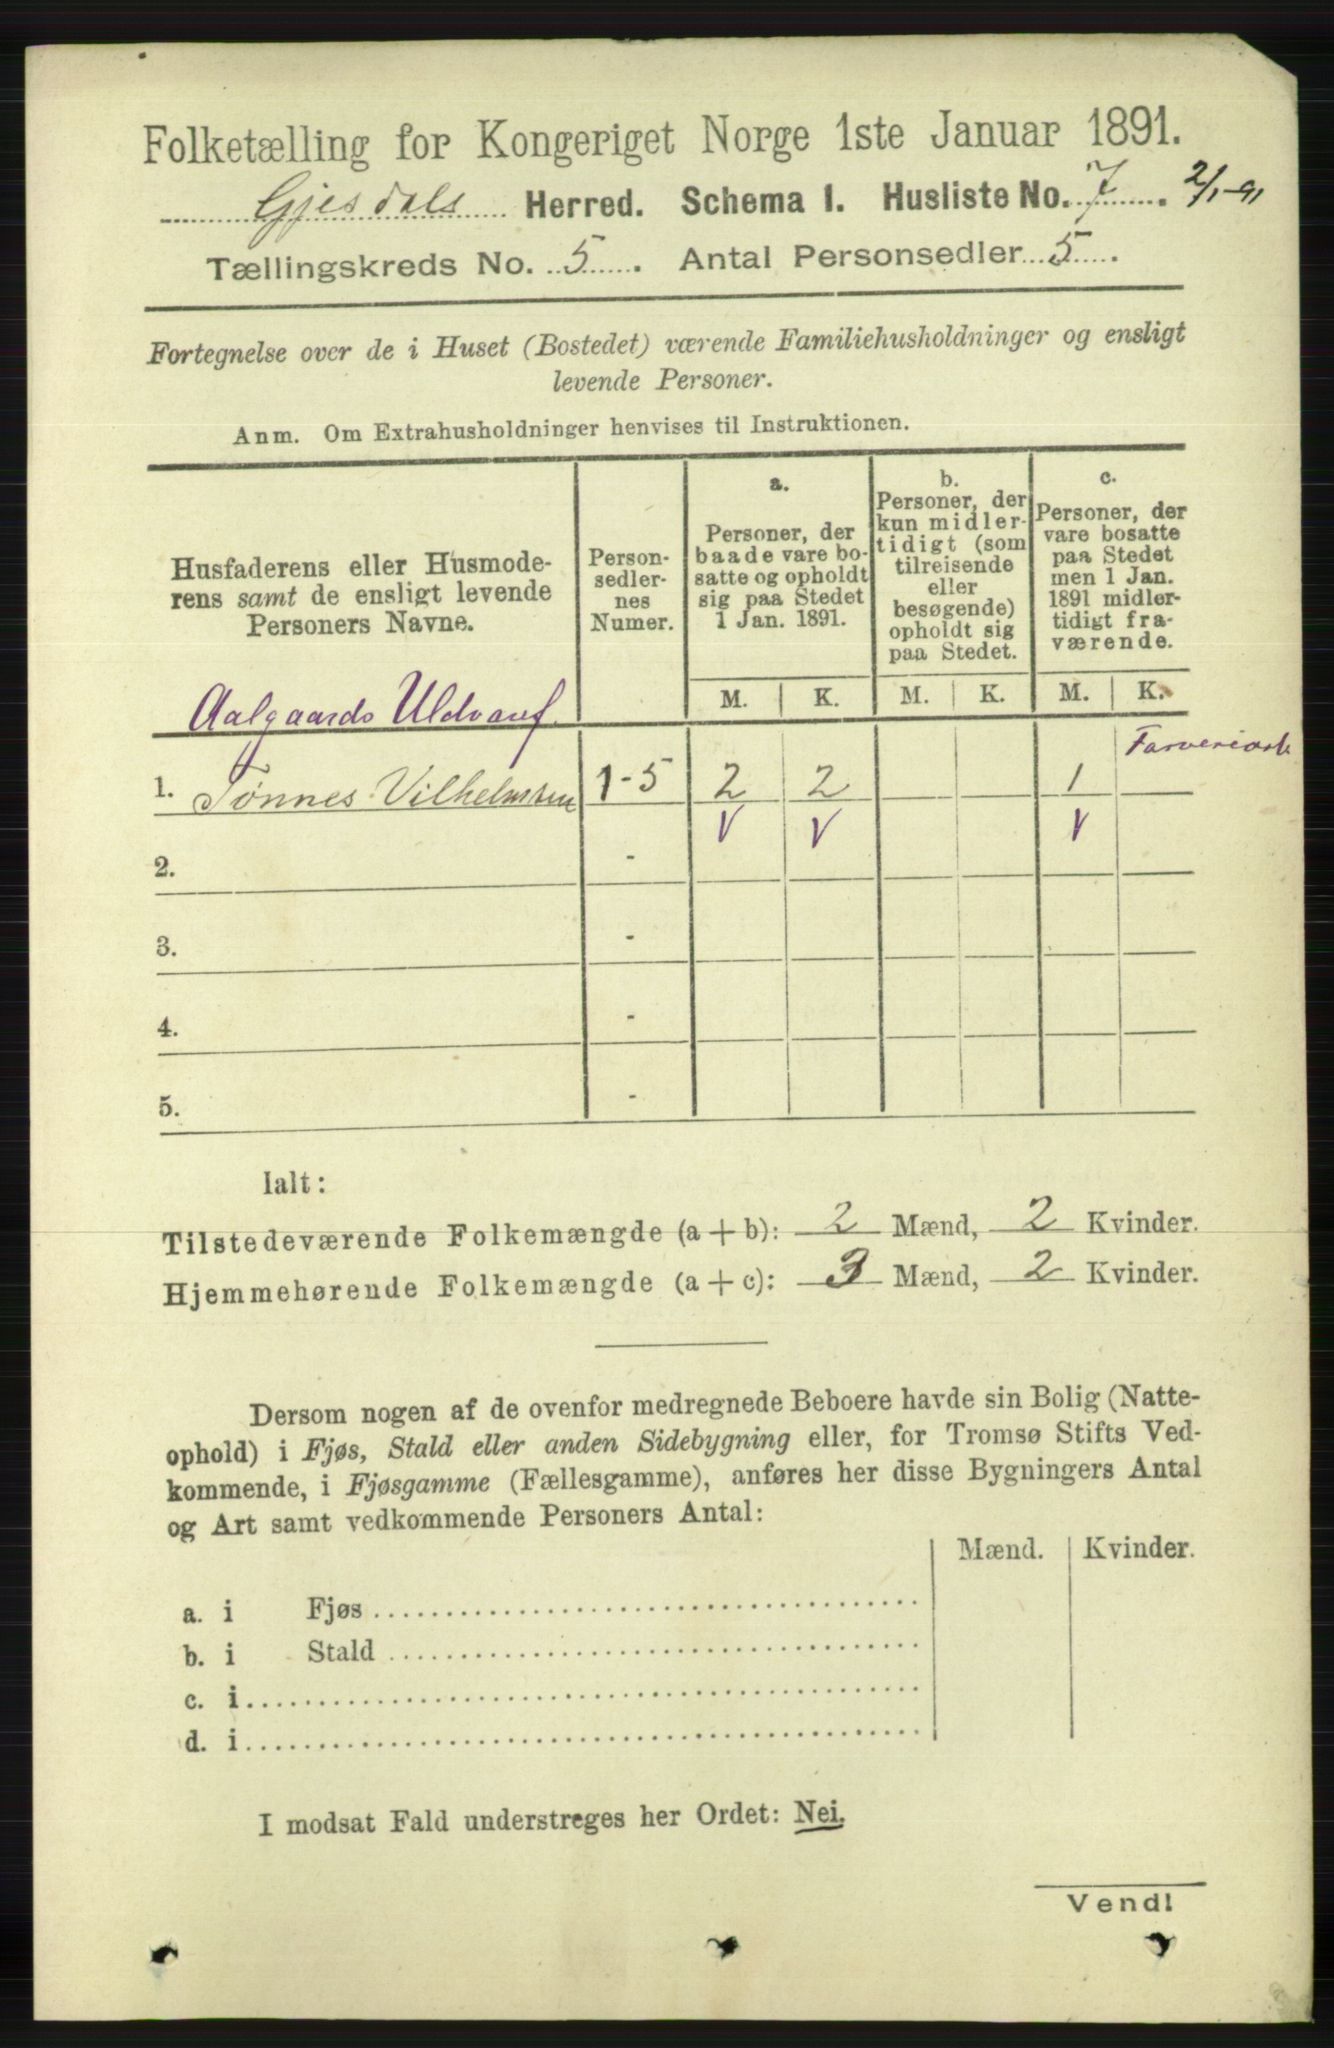 Folketælling for Kongeriget Norge 1ste Januar 1891.
Gjesdals Herred. Schema 1. Husliste No. 7. 2/1-91
Tællingskreds No. 5. Antal Personsedler 5.
Fortegnelse over de i Huset (Bostedet) værende Familiehusholdninger og ensligt
levende Personer.
Anm. Om Extrahusholdninger henvises til Instruktionen.
Husfaderens eller Husmode-
rens samt de ensligt levende
Personers Navne.
Person-
sedler-
nes
Numer.
a.
Personer, der
baade vare bo-
satte og opholdt
sig paa Stedet
1 Jan. 1891.
b.
Personer, der
kun midler-
tidigt (som
tilreisende
eller
besøgende)
opholdt sig
paa Stedet.
c.
Personer, der
vare bosatte
paa Stedet
men 1 Jan.
1891 midler-
tidigt fra-
værende.
M. K. M. K. M. K.
Aalgaards Uldvaref.
1. Tønnes Vilhelmsen 1-5 2 2 1
V V V
2. -
3. -
4. -
5. -
Ialt:
Tilstedeværende Folkemængde (a + b): 2 Mænd, 2 Kvinder.
Hjemmehørende Folkemængde (a + c): 3 Mænd, 2 Kvinder.
Dersom nogen af de ovenfor medregnede Beboere havde sin Bolig (Natte-
ophold) i Fjøs, Stald eller anden Sidebygning eller, for Tromsø Stifts Ved-
kommende, i Fjøsgamme (Fællesgamme), anføres her disse Bygningers Antal
og Art samt vedkommende Personers Antal:
Mænd. Kvinder.
a. i Fjøs
b. i Stald
c. i
d. i
I modsat Fald understreges her Ordet: Nei.
Vend!